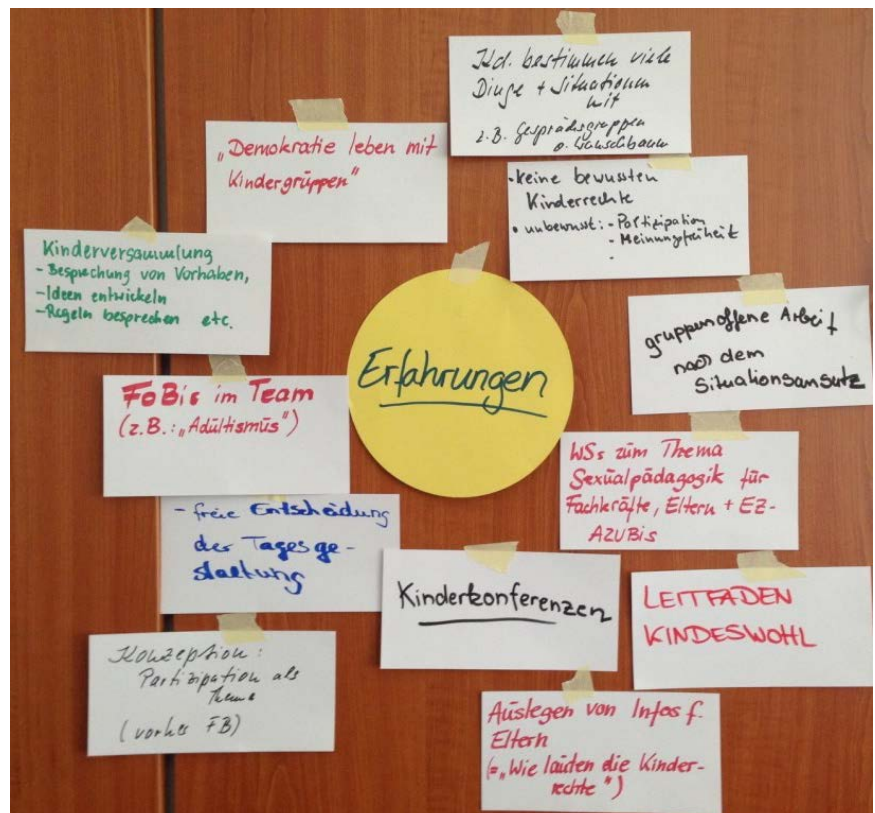 Kd. bestimmen viele
Dinge + Situationen
mit
z.B. Gesprächsgruppen
o. Wunschbaum
„Demokratie leben mit
Kindergruppen"
• keine bewussten
Kinderrechte
• unbewusst: - Partizipation
- Meinungsfreiheit
-
Kinderversammlung
- Besprechung von Vorhaben,
- Ideen entwickeln
- Regeln besprechen etc.
Erfahrungen
gruppenoffene Arbeit
nach dem
Situationsansatz
FoBis im Team
(z.B.: „Adultismus")
WSs zum Thema
Sexualpädagogik für
Fachkräfte, Eltern + EZ-
AZUBis
- freie Entscheidung
der Tagesge-
staltung
Kinderkonferenzen
LEITFADEN
KINDESWOHL
Konzeption:
Partizipation als
Thema
(vorher FB)
Auslegen von Infos f.
Eltern
(=„Wie lauten die Kinder-
rechte")